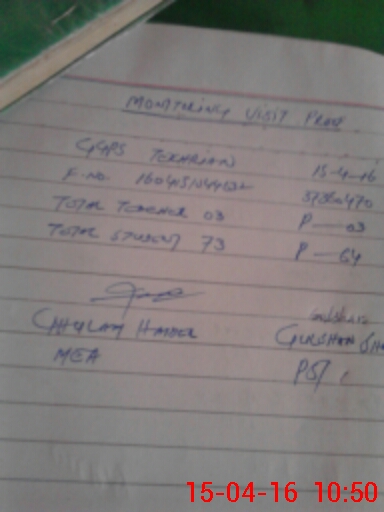 MONITORING VISIT PROOF
GGPS TEKARIAN 15-4-16
F.NO. 51360470
TOTAL TEACHER 03 P — 03
TOTAL STUDENT 73 P — 64
GHULAM HAIDER GULSHAN
MEA PST
15-04-16 10:50